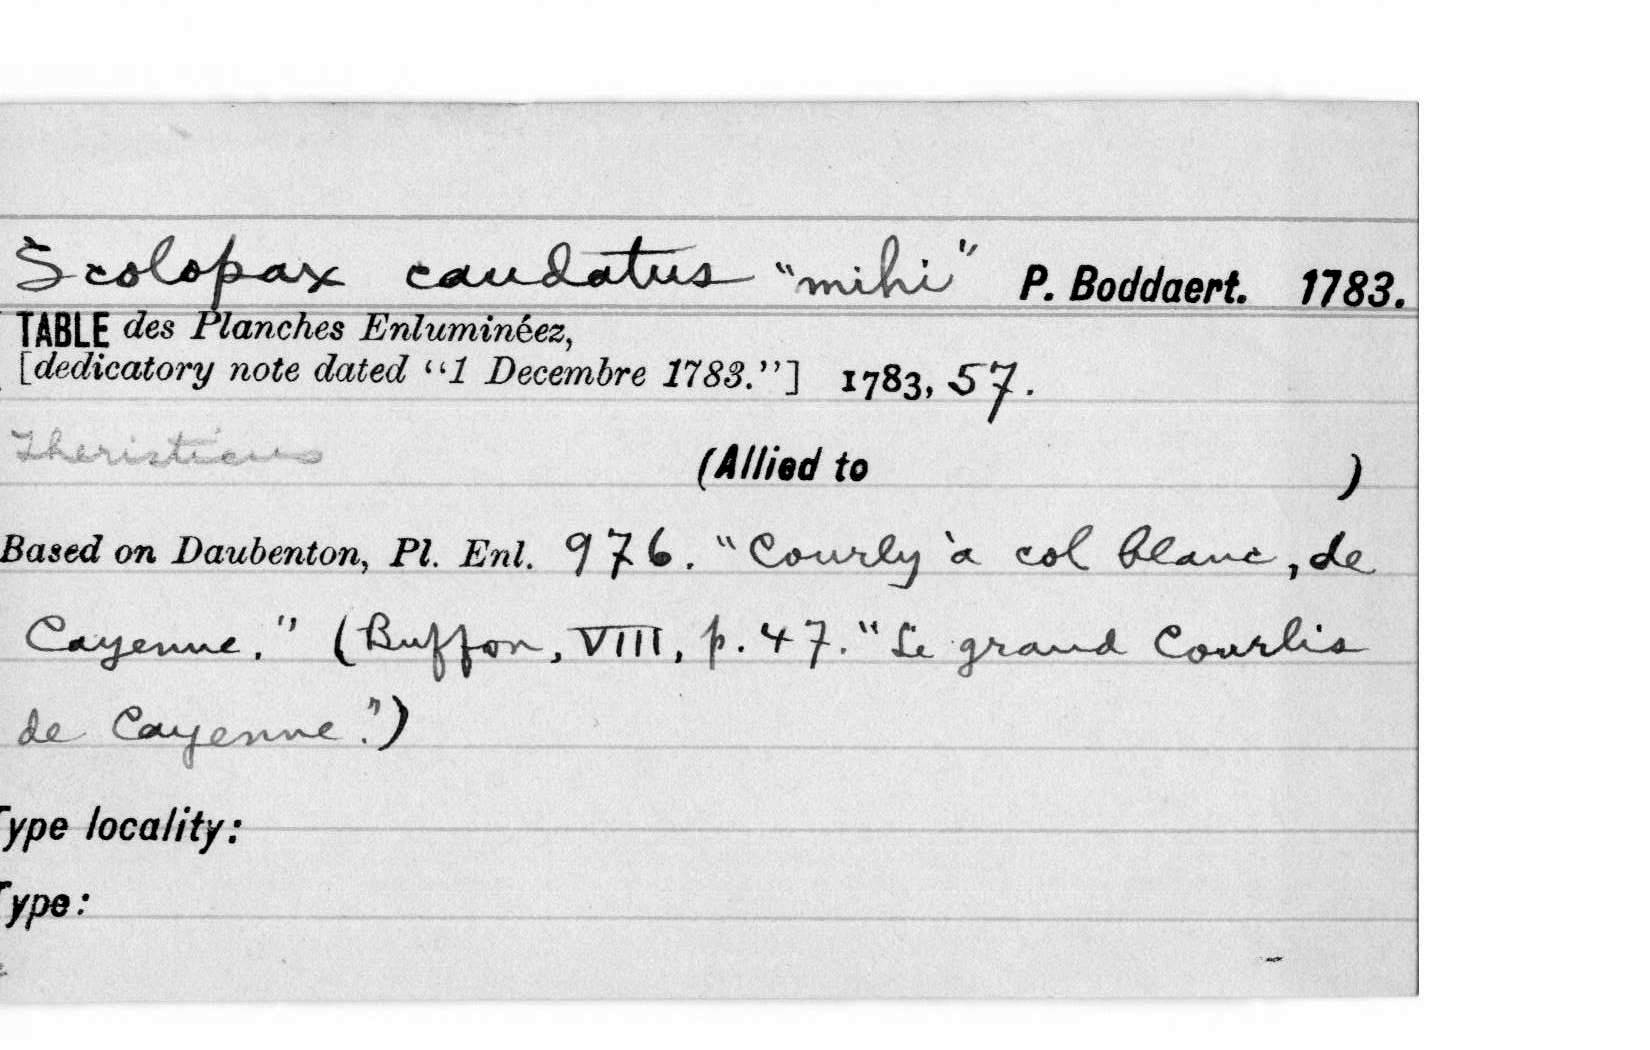 Scolopax caudatus "mihi" P. Boddaert. 1783.
TABLE des Planches Enluminéez,
[dedicatory note dated "1 Decembre 1783."] 1783, 57.
Theristicus (Allied to )
Based on Daubenton, Pl. Enl. 976. "Courly à col blanc, de
Cayenne." (Buffon, VIII, p. 47. "Le grand Courlis
de Cayenne.")
Type locality:
Type: